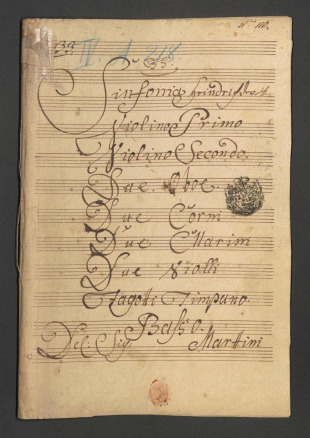 33.
IV A 218
33.
Sinfonia
Violino Primo
Violino Secondo.
Due Oboe.
Due Corni
Due Clarini
Due Violli
Fagotti Timpano.
Basso.
Del: Sig: Martini